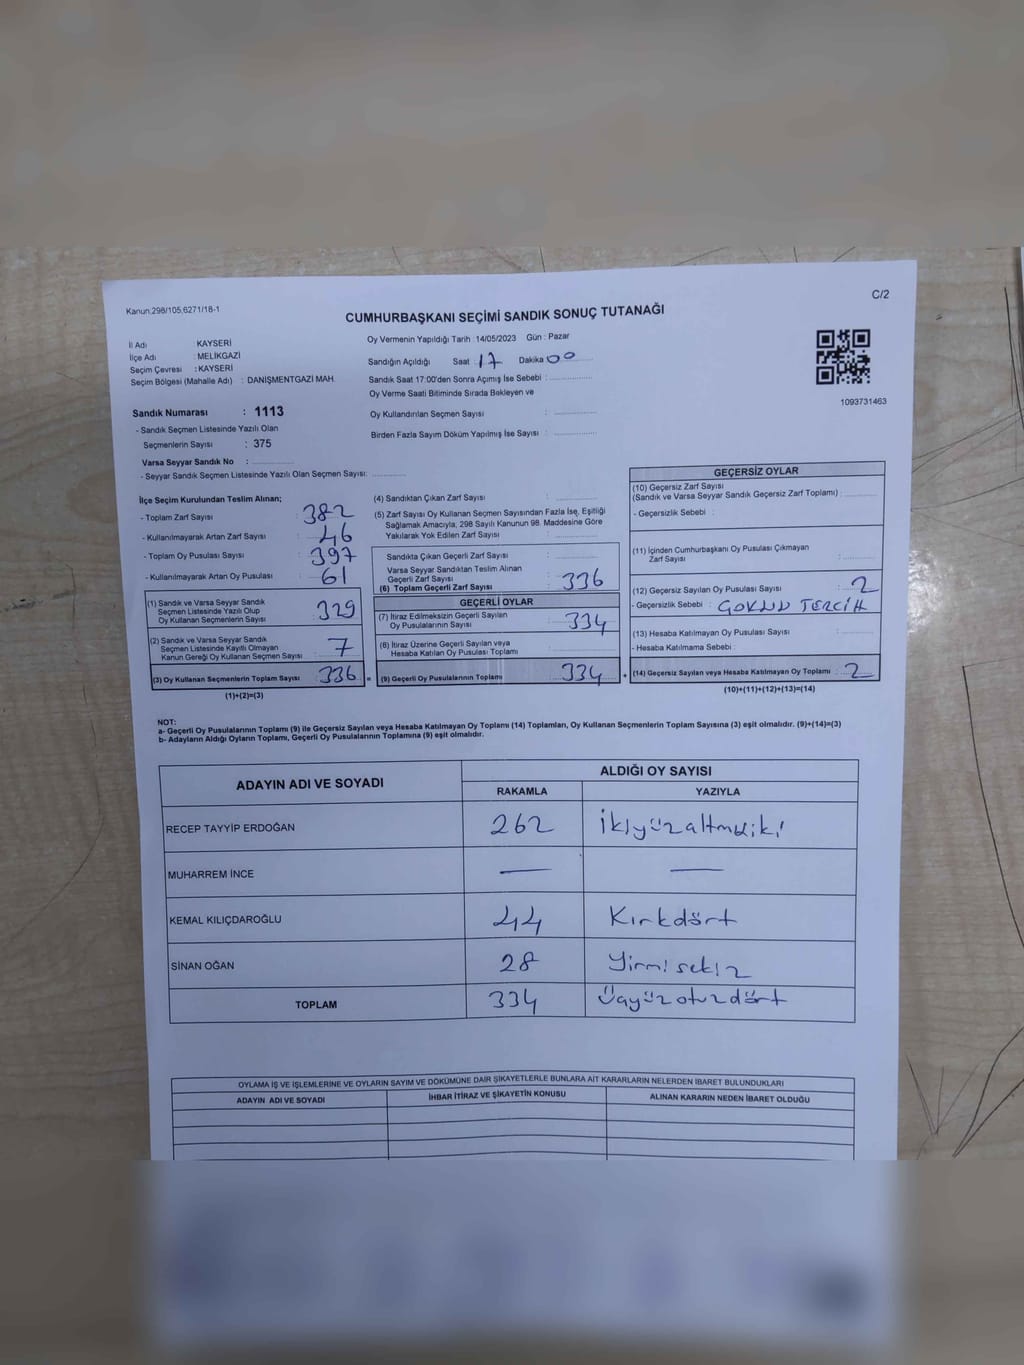 Kanun:298/105,6271/18-1
C/2
CUMHURBAŞKANI SEÇİMİ SANDIK SONUÇ TUTANAĞI
İl Adı KAYSERİ
İlçe Adı : MELİKGAZİ
Seçim Çevresi : KAYSERİ
Seçim Bölgesi (Mahalle Adı) : DANİŞMENTGAZİ MAH.
Oy Vermenin Yapıldığı Tarih : 14/05/2023 Gün : Pazar
Sandığın Açıldığı Saat : 17 Dakika 00
Sandık Saat 17:00'den Sonra Açımış İse Sebebi :
Oy Verme Saati Bitiminde Sırada Bekleyen ve
Oy Kullandırılan Seçmen Sayısı :
Birden Fazla Sayım Döküm Yapılmış İse Sayısı :
1093731463
Sandık Numarası : 1113
- Sandık Seçmen Listesinde Yazılı Olan
Seçmenlerin Sayısı : 375
Varsa Seyyar Sandık No :
- Seyyar Sandık Seçmen Listesinde Yazılı Olan Seçmen Sayısı:
İlçe Seçim Kurulundan Teslim Alınan;
- Toplam Zarf Sayısı : 382
- Kullanılmayarak Artan Zarf Sayısı : 46
- Toplam Oy Pusulası Sayısı : 397
- Kullanılmayarak Artan Oy Pusulası : 61
(1) Sandık ve Varsa Seyyar Sandık
Seçmen Listesinde Yazılı Olup
Oy Kullanan Seçmenlerin Sayısı : 329
(2) Sandık ve Varsa Seyyar Sandık
Seçmen Listesinde Kayıtlı Olmayan
Kanun Gereği Oy Kullanan Seçmen Sayısı : 7
(3) Oy Kullanan Seçmenlerin Toplam Sayısı : 336
(1)+(2)=(3)
(4) Sandıktan Çıkan Zarf Sayısı :
(5) Zarf Sayısı Oy Kullanan Seçmen Sayısından Fazla İse, Eşitliği
Sağlamak Amacıyla, 298 Sayılı Kanunun 98. Maddesine Göre
Yakılarak Yok Edilen Zarf Sayısı :
Sandıkta Çıkan Geçerli Zarf Sayısı :
Varsa Seyyar Sandıktan Teslim Alınan
Geçerli Zarf Sayısı :
(6) Toplam Geçerli Zarf Sayısı : 336
GEÇERLİ OYLAR
(7) İtiraz Edilmeksizin Geçerli Sayılan
Oy Pusulalarının Sayısı : 334
(8) İtiraz Üzerine Geçerli Sayılan veya
Hesaba Katılan Oy Pusulası Toplamı :
= (9) Geçerli Oy Pusulalarının Toplamı : 334 +
GEÇERSİZ OYLAR
(10) Geçersiz Zarf Sayısı
(Sandık ve Varsa Seyyar Sandık Geçersiz Zarf Toplamı) :
- Geçersizlik Sebebi :
(11) İçinden Cumhurbaşkanı Oy Pusulası Çıkmayan
Zarf Sayısı :
(12) Geçersiz Sayılan Oy Pusulası Sayısı : 2
- Geçersizlik Sebebi : ÇOKLU TERCİH
(13) Hesaba Katılmayan Oy Pusulası Sayısı :
- Hesaba Katılmama Sebebi :
(14) Geçersiz Sayılan veya Hesaba Katılmayan Oy Toplamı : 2
(10)+(11)+(12)+(13)=(14)
NOT:
a- Geçerli Oy Pusulalarının Toplamı (9) ile Geçersiz Sayılan veya Hesaba Katılmayan Oy Toplamı (14) Toplamları, Oy Kullanan Seçmenlerin Toplam Sayısına (3) eşit olmalıdır. (9)+(14)=(3)
b- Adayların Aldığı Oyların Toplamı, Geçerli Oy Pusulalarının Toplamına (9) eşit olmalıdır.
ADAYIN ADI VE SOYADI ALDIĞI OY SAYISI
RAKAMLA YAZIYLA
RECEP TAYYİP ERDOĞAN 262 İkiyüzaltmışiki
MUHARREM İNCE — —
KEMAL KILIÇDAROĞLU 44 Kırkdört
SİNAN OĞAN 28 Yirmisekiz
TOPLAM 334 Üçyüzotuzdört
OYLAMA İŞ VE İŞLEMLERİNE VE OYLARIN SAYIM VE DÖKÜMÜNE DAİR ŞİKAYETLERLE BUNLARA AİT KARARLARIN NELERDEN İBARET BULUNDUKLARI
ADAYIN ADI VE SOYADI İHBAR İTİRAZ VE ŞİKAYETİN KONUSU ALINAN KARARIN NEDEN İBARET OLDUĞU